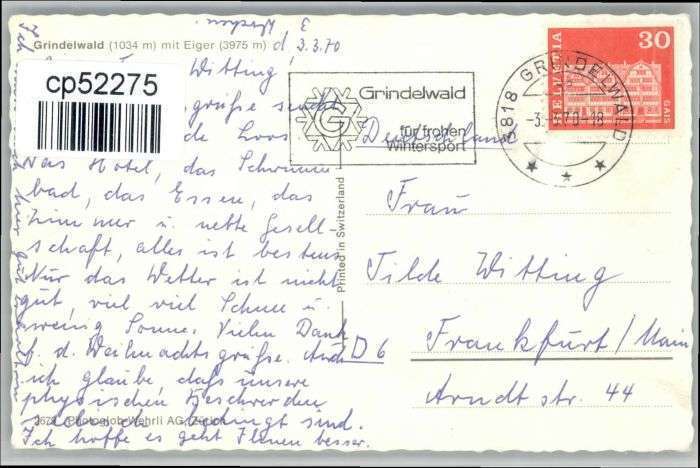 Grindelwald (1034 m) mit Eiger (3975 m) d 3.3.70
cp52275
Witting!
grüße sendet
de Loos
Das Hotel, das Schwimm-
bad, das Essen, das
Zimmer u. nette Gesell-
schaft, alles ist bestens
Nur das Wetter ist nicht
gut, viel viel Schnee u.
wenig Sonne. Vielen Dank
f. d. Weihnachtsgrüße. Auch
ich glaube, daß unsere
physischen Beschwerden
bedingt sind.
Ich hoffe es geht Ihnen besser.
Photoglob-Wehrli AG, Zürich
Printed in Switzerland
Grindelwald
für frohen
Wintersport
3818 GRINDELWALD
HELVETIA
30
GAIS
Deutschland
Frau
Tilde Witting
D 6 Frankfurt/Main
Arndtstr. 44